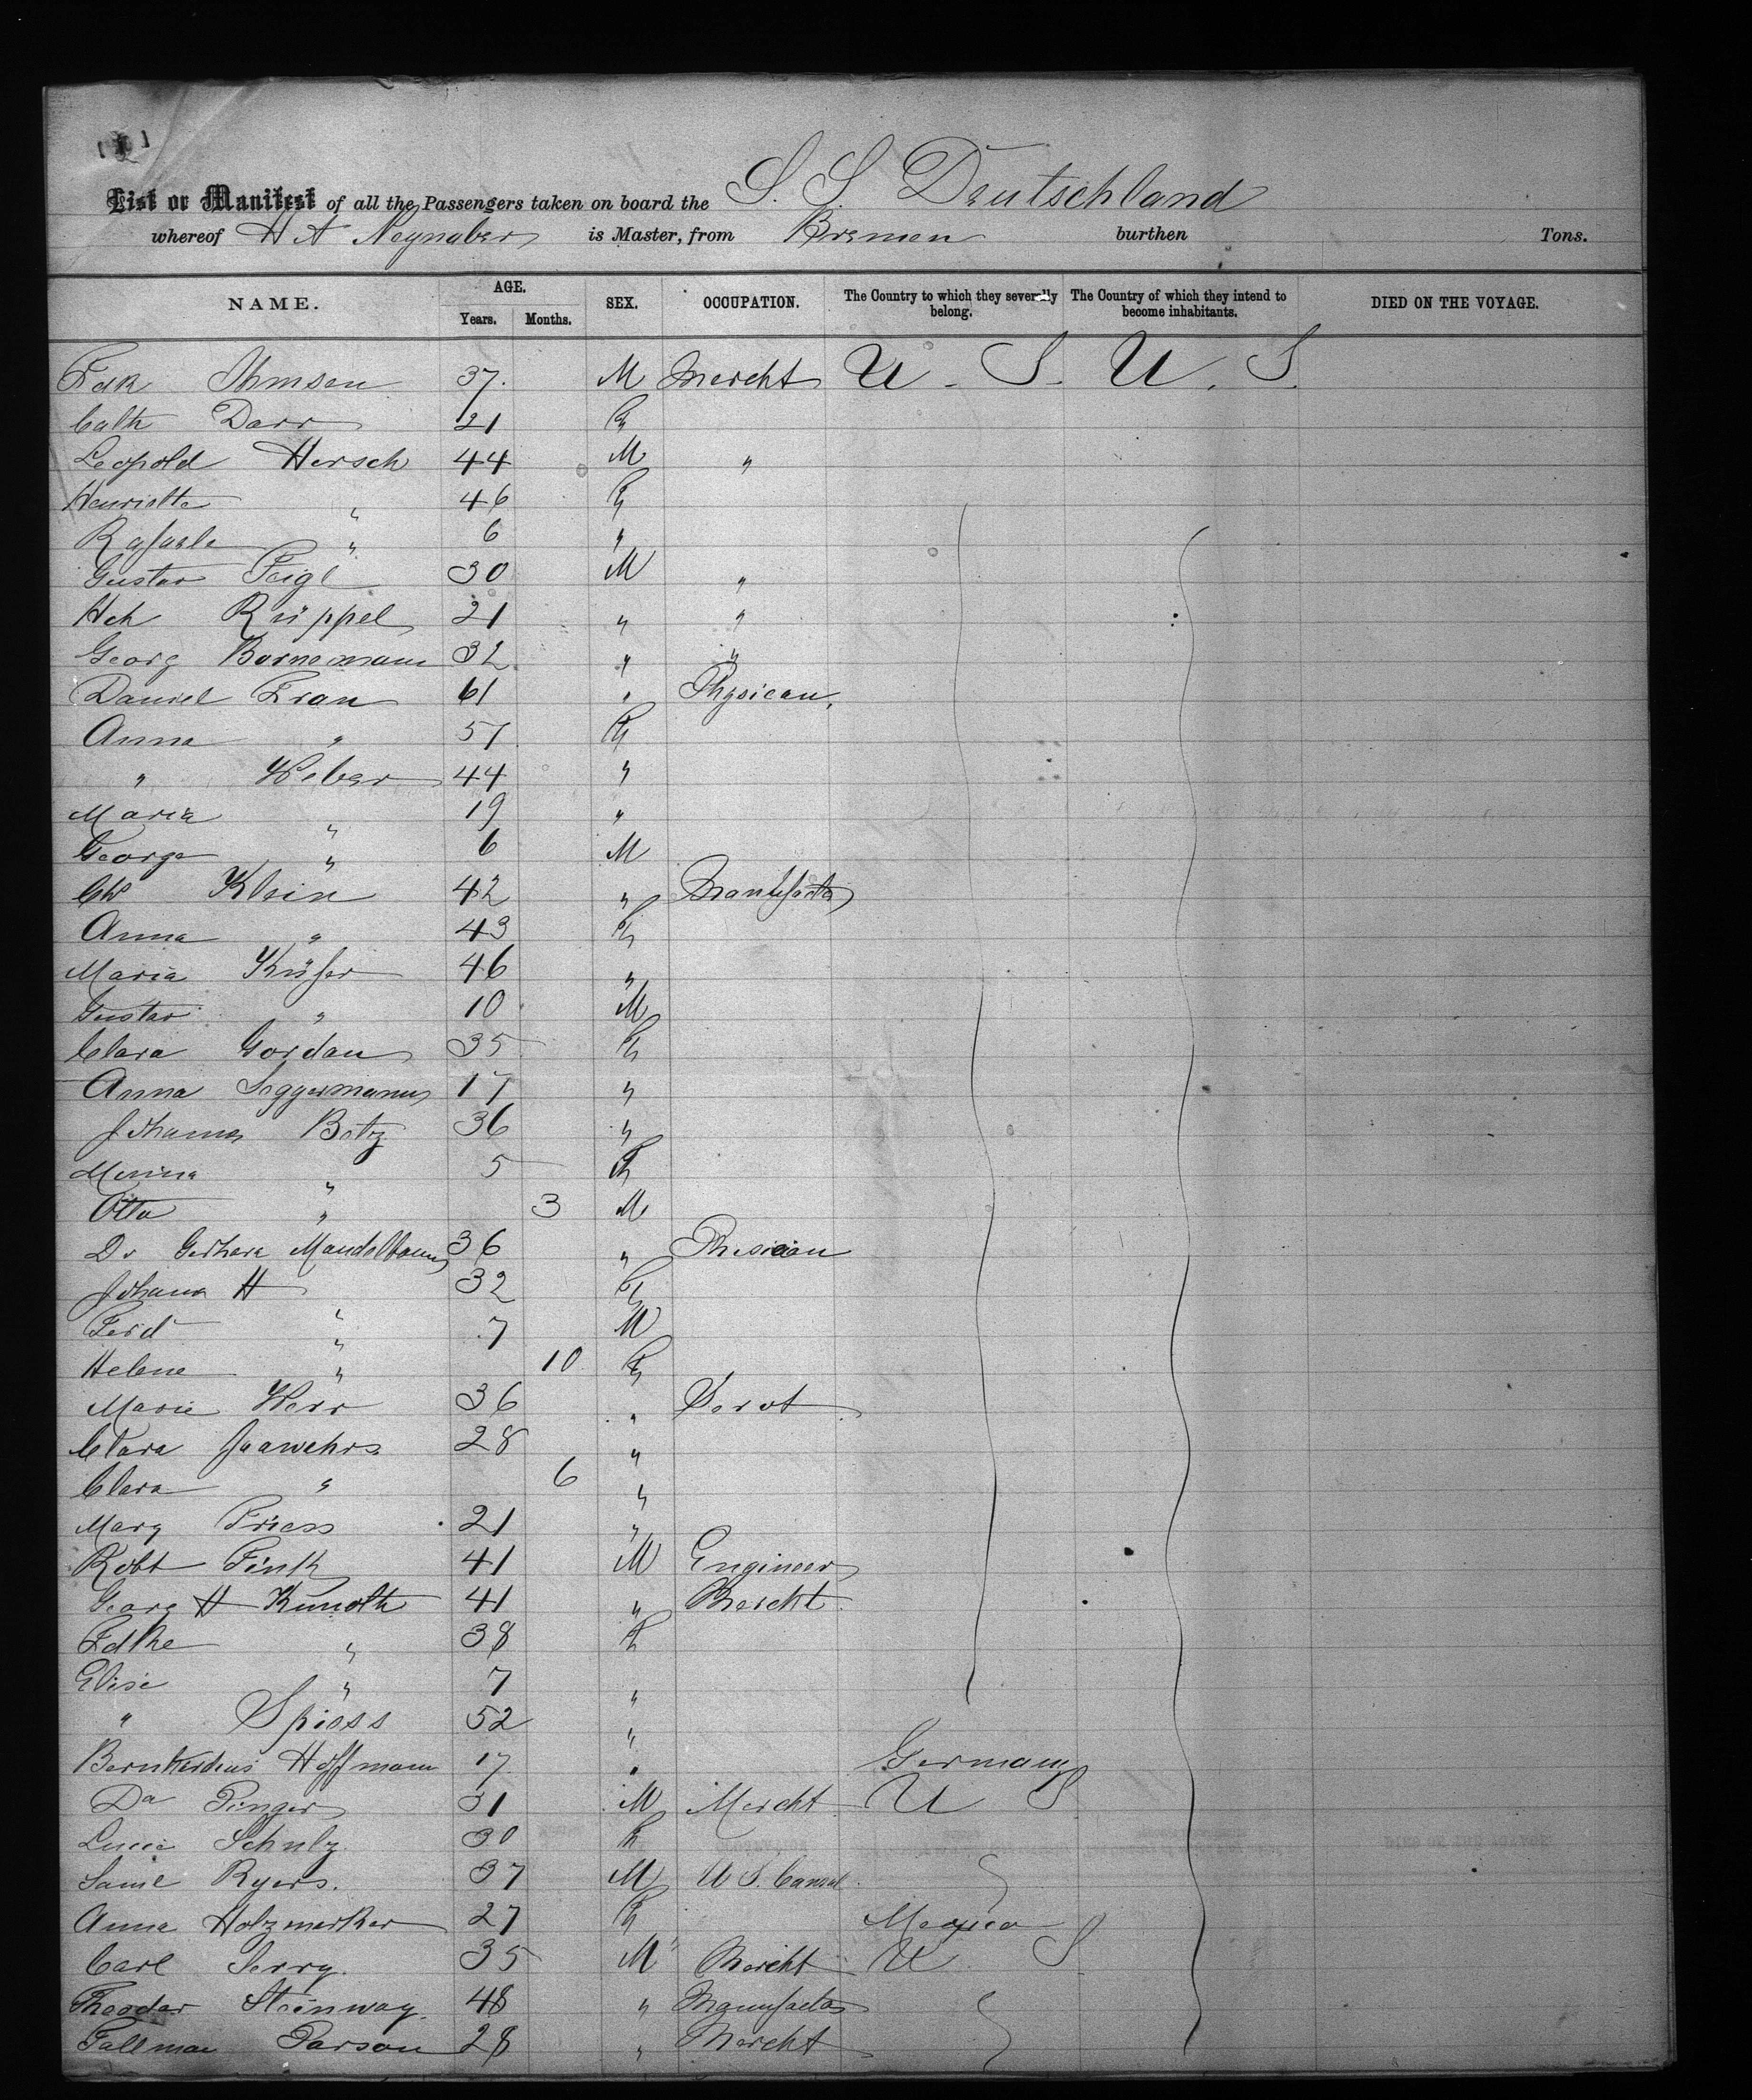 List or Manifest of all the Passengers taken on board the S. S. Deutschland
whereof H A Neynaber is Master, from Bremen burthen Tons.
NAME. AGE. Years. Months. SEX. OCCUPATION. The Country to which they severally belong. The Country of which they intend to become inhabitants. DIED ON THE VOYAGE.
37. M Mercht U. S. U. S.
Cath Darr 21
Leopold Hersch 44 M "
Henriette " 46
" 6 "
Gustav 30 M "
Hch Rüppel 21 " "
Georg Bornemann 32 " "
Daniel 61 " Physican,
Anna " 57
" Weber 44 "
Maria " 19 "
George " 6 M
Klein 42 "
Anna " 43
Maria Küfer 46 "
Gustav " 10 M
Clara Gordan 35
Anna Seggermann 17 "
Botz 36 "
Minna " 5
Otto " 3 M
Dr Mandelbaum 36 "
Johana H " 32
Ferd " 7 M
Helene " 10
Marie Herr 36 " Servt
Clara 28 "
Clara " 6 "
Mary Friess 21 "
Robt Fink 41 M Engineer
Georg H Kunoth 41 " Mercht
" 38
Elise " 7 "
" Spiess 52 "
Hoffmann 17. " Germany
31 M Mercht U S
Lucie Schulz 30
Ryers. 37 M U S. Consul
Anna 27
Carl 35 M Mercht U S
Theodor Steinway. 48 "
Parson 28 " Mercht